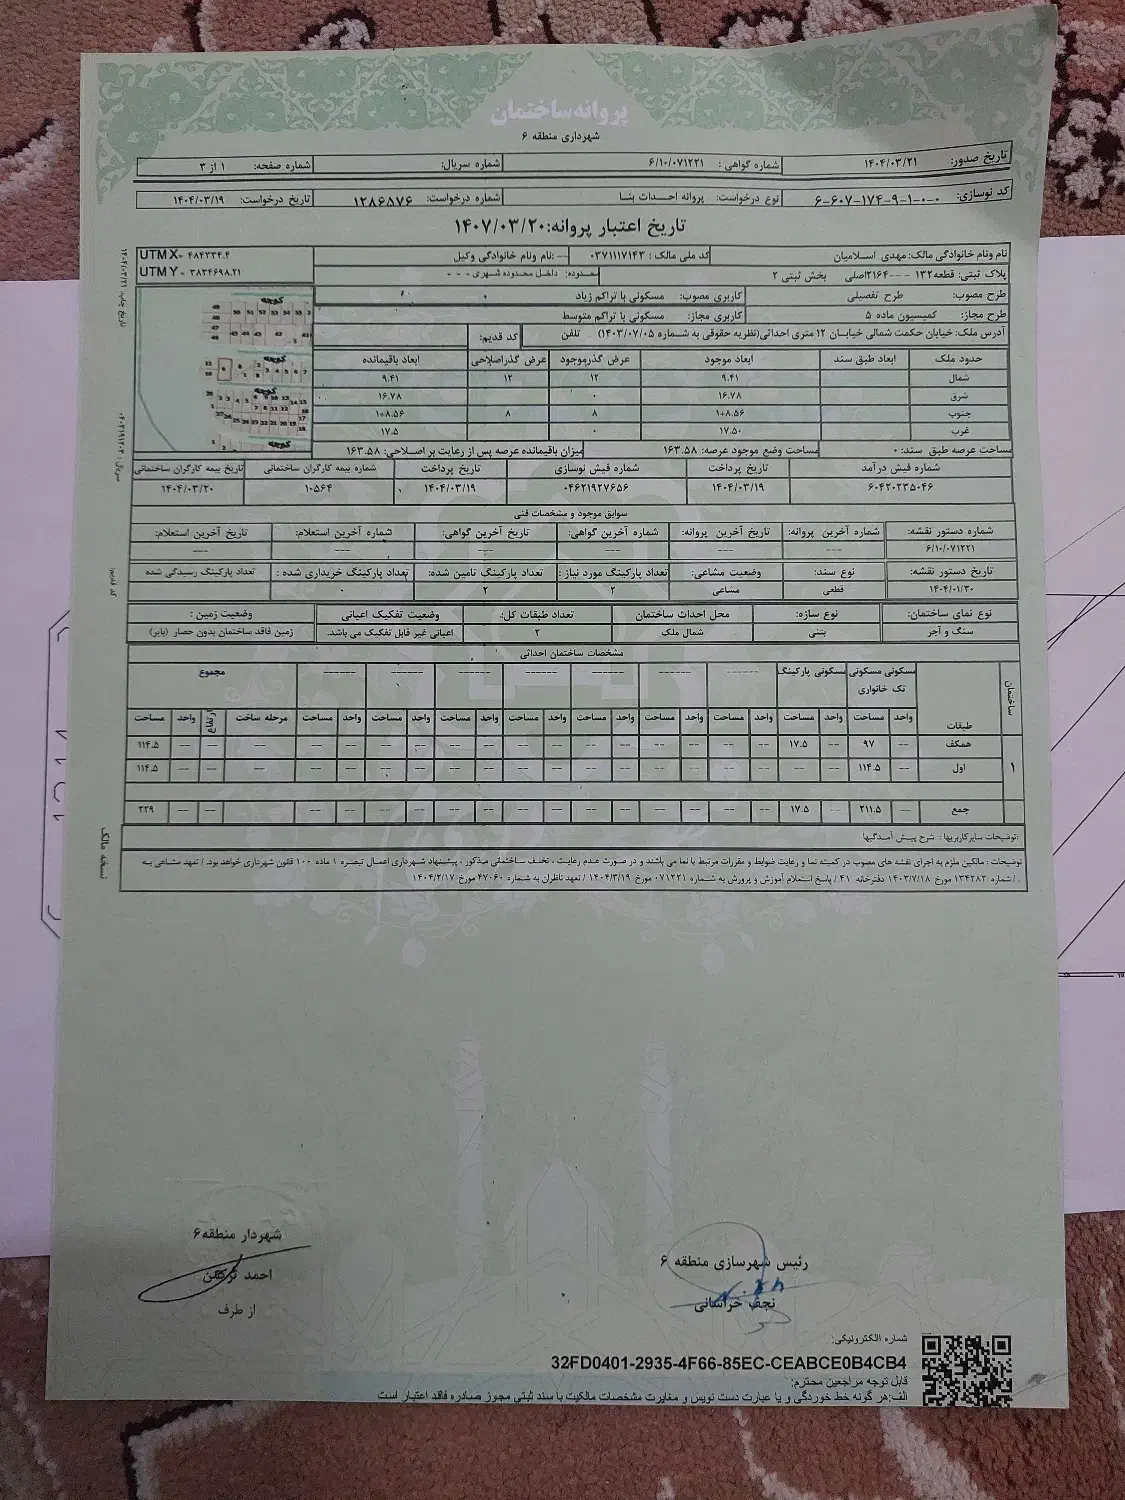 پروانه ساختمان
شهرداری منطقه ۶
تاریخ صدور: ۱۴۰۴/۰۳/۲۱ شماره گواهی : ۶/۱۰/۰۷۱۲۲۱ شماره سریال: شماره صفحه: ۱ از ۳
کد نوسازی: ۶-۶۰۷-۱۷۴-۹-۱-۰-۰ نوع درخواست: پروانه احداث بنا شماره درخواست: ۱۲۸۶۵۷۶ تاریخ درخواست: ۱۴۰۴/۰۳/۱۹
تاریخ اعتبار پروانه:۱۴۰۷/۰۳/۲۰
نام ونام خانوادگی مالک: مهدی اسلامیان کد ملی مالک : ۰۳۷۱۱۱۷۱۴۳ ---:نام ونام خانوادگی وکیل
UTM X= ۴۸۴۳۳۴.۴
پلاک ثبتی: قطعه۱۳۲ ---۲۱۶۴اصلی بخش ثبتی ۲ محدوده: داخل محدوده شهری - - -
UTM Y= ۳۸۳۴۶۹۸.۲۱
طرح مصوب: طرح تفصیلی کاربری مصوب: مسکونی با تراکم زیاد
طرح مجاز: کمیسیون ماده ۵ کاربری مجاز: مسکونی با تراکم متوسط
آدرس ملک: خیابان حکمت شمالی خیابان ۱۲ متری احداثی(نظریه حقوقی به شماره ۱۴۰۳/۰۷/۰۵) تلفن کد قدیم:
حدود ملک ابعاد طبق سند ابعاد موجود عرض گذرموجود عرض گذراصلاحی ابعاد باقیمانده
شمال ۹.۴۱ ۱۲ ۱۲ ۹.۴۱
شرق ۱۶.۷۸ ۰ ۱۶.۷۸
جنوب ۱+۸.۵۶ ۸ ۸ ۱+۸.۵۶
غرب ۱۷.۵۰ ۰ ۱۷.۵
مساحت عرصه طبق سند: ۰ مساحت وضع موجود عرصه: ۱۶۳.۵۸ میزان باقیمانده عرصه پس از رعایت بر اصلاحی: ۱۶۳.۵۸
شماره فیش درآمد تاریخ پرداخت شماره فیش نوسازی تاریخ پرداخت شماره بیمه کارگران ساختمانی تاریخ بیمه کارگران ساختمانی
۶۰۴۲۰۲۳۵۰۴۶ ۱۴۰۴/۰۳/۱۹ ۰۴۶۲۱۹۲۷۶۵۶ ۱۴۰۴/۰۳/۱۹ ۱۰۵۶۴ ۱۴۰۴/۰۳/۲۰
سوابق موجود و مشخصات فنی
شماره دستور نقشه: شماره آخرین پروانه: تاریخ آخرین پروانه: شماره آخرین گواهی: تاریخ آخرین گواهی: شماره آخرین استعلام: تاریخ آخرین استعلام:
۶/۱۰/۰۷۱۲۲۱ --- --- --- --- --- ---
تاریخ دستور نقشه: نوع سند: وضعیت مشاعی: تعداد پارکینگ مورد نیاز : تعداد پارکینگ تامین شده: تعداد پارکینگ خریداری شده : تعداد پارکینگ رسیدگی شده
۱۴۰۴/۰۱/۳۰ قطعی مشاعی ۲ ۲ ۰
نوع نمای ساختمان: نوع سازه: محل احداث ساختمان تعداد طبقات کل: وضعیت تفکیک اعیانی وضعیت زمین :
سنگ و آجر بتنی شمال ملک ۲ اعیانی غیر قابل تفکیک می باشد. زمین فاقد ساختمان بدون حصار (بایر)
مشخصات ساختمان احداثی
ساختمان طبقات مسکونی مسکونی تک خانواری مسکونی پارکینگ ------- ------- ------- ------- ------- ------- ------- مجموع
واحد مساحت واحد مساحت واحد مساحت واحد مساحت واحد مساحت واحد مساحت واحد مساحت واحد مساحت واحد مساحت مرحله ساخت ارتفاع واحد مساحت
همکف -- ۹۷ -- ۱۷.۵ -- -- -- -- -- -- -- -- -- -- -- -- -- -- -- -- -- ۱۱۴.۵
۱ اول -- ۱۱۴.۵ -- -- -- -- -- -- -- -- -- -- -- -- -- -- -- -- -- -- -- ۱۱۴.۵
جمع -- ۲۱۱.۵ -- ۱۷.۵ -- -- -- -- -- -- -- -- -- -- -- -- -- -- -- -- -- ۲۲۹
توضیحات سایرکاربریها : شرح پیش آمدگیها:
توضیحات : مالکین ملزم به اجرای نقشه های مصوب در کمیته نما و رعایت ضوابط و مقررات مرتبط با نما می باشند و در صورت عدم رعایت ، تخلف ساختمانی مذکور ، پیشنهاد شهرداری اعمال تبصره ۱ ماده ۱۰۰ قانون شهرداری خواهد بود. / تعهد مشاعی به
. / شماره ۱۳۴۲۸۲ مورخ ۱۴۰۳/۷/۱۸ دفترخانه ۴۱ / پاسخ استعلام آموزش و پرورش به شماره ۰۷۱۲۲۱ مورخ ۱۴۰۴/۳/۱۹ / تعهد ناظران به شماره ۴۷۰۶۰ مورخ ۱۴۰۴/۲/۱۷
تاریخ چاپ: ۱۴۰۴/۰۳/۲۱
نسخه مالک
رئیس شهرسازی منطقه ۶
نجف خراسانی
شهردار منطقه۶
احمد
از طرف
شماره الکترونیکی:
32FD0401-2935-4F66-85EC-CEABCE0B4CB4
قابل توجه مراجعین محترم:
الف:هر گونه خط خوردگی و یا عبارت دست نویس و مغایرت مشخصات مالکیت با سند ثبتی مجوز صادره فاقد اعتبار است